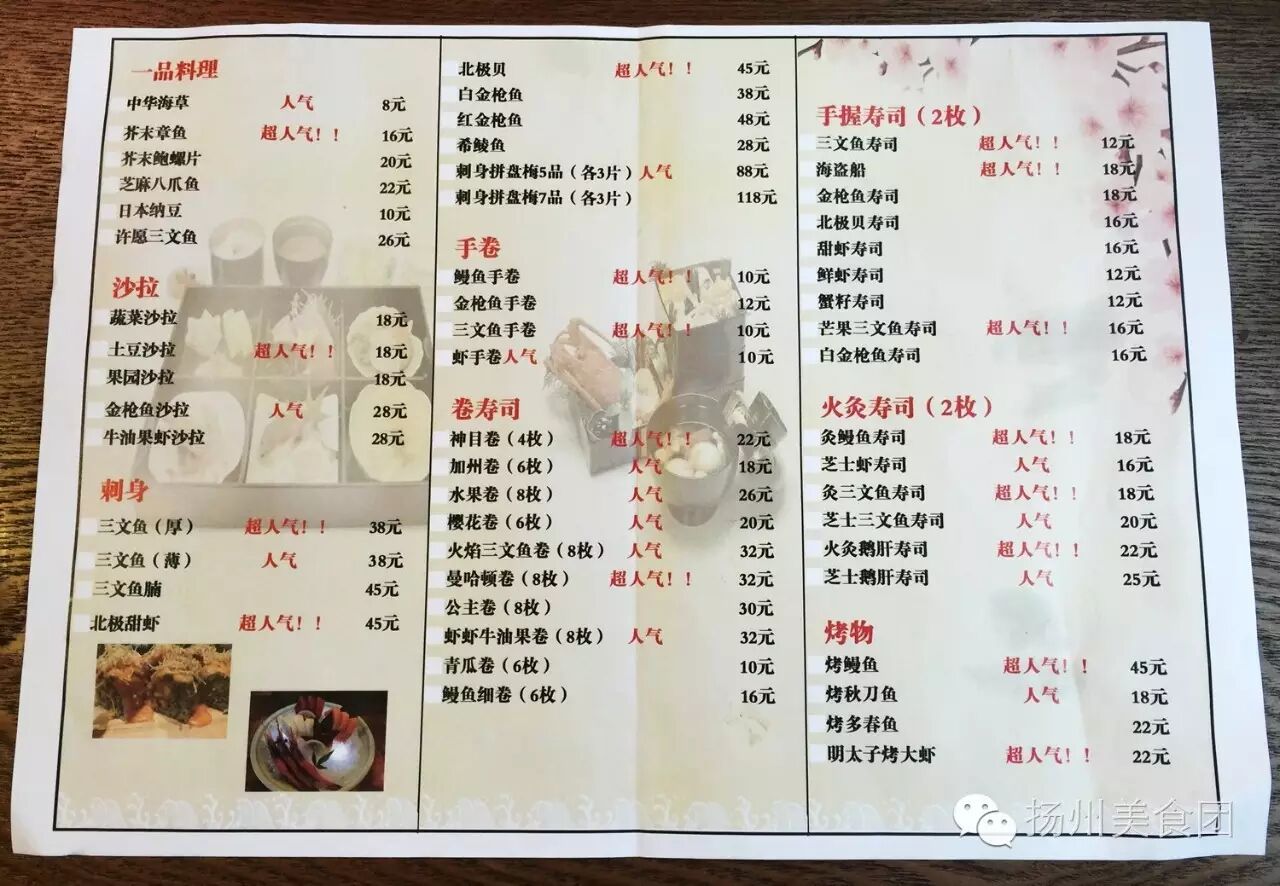 一品料理
中华海草 人气 8元
芥末章鱼 超人气！！ 16元
芥末鲍螺片 20元
芝麻八爪鱼 22元
日本纳豆 10元
许愿三文鱼 26元
沙拉
蔬菜沙拉 18元
土豆沙拉 超人气！！ 18元
果园沙拉 18元
金枪鱼沙拉 人气 28元
牛油果虾沙拉 28元
刺身
三文鱼（厚） 超人气！！ 38元
三文鱼（薄） 人气 38元
三文鱼腩 45元
北极甜虾 超人气！！ 45元
北极贝 超人气！！ 45元
白金枪鱼 38元
红金枪鱼 48元
希鲮鱼 28元
刺身拼盘梅5品（各3片）人气 88元
刺身拼盘梅7品（各3片） 118元
手卷
鳗鱼手卷 超人气！！ 10元
金枪鱼手卷 12元
三文鱼手卷 超人气！！ 10元
虾手卷人气 10元
卷寿司
神目卷（4枚） 超人气！！ 22元
加州卷（6枚） 人气 18元
水果卷（8枚） 人气 26元
樱花卷（6枚） 人气 20元
火焰三文鱼卷（8枚） 人气 32元
曼哈顿卷（8枚） 超人气！！ 32元
公主卷（8枚） 30元
虾虾牛油果卷（8枚） 人气 32元
青瓜卷（6枚） 10元
鳗鱼细卷（6枚） 16元
手握寿司（2枚）
三文鱼寿司 超人气！！ 12元
海盗船 超人气！！ 18元
金枪鱼寿司 18元
北极贝寿司 16元
甜虾寿司 16元
鲜虾寿司 12元
蟹籽寿司 12元
芒果三文鱼寿司 超人气！！ 16元
白金枪鱼寿司 16元
火灸寿司（2枚）
灸鳗鱼寿司 超人气！！ 18元
芝士虾寿司 人气 16元
灸三文鱼寿司 超人气！！ 18元
芝士三文鱼寿司 人气 20元
火灸鹅肝寿司 超人气！！ 22元
芝士鹅肝寿司 人气 25元
烤物
烤鳗鱼 超人气！！ 45元
烤秋刀鱼 人气 18元
烤多春鱼 22元
明太子烤大虾 超人气！！ 22元
扬州美食团